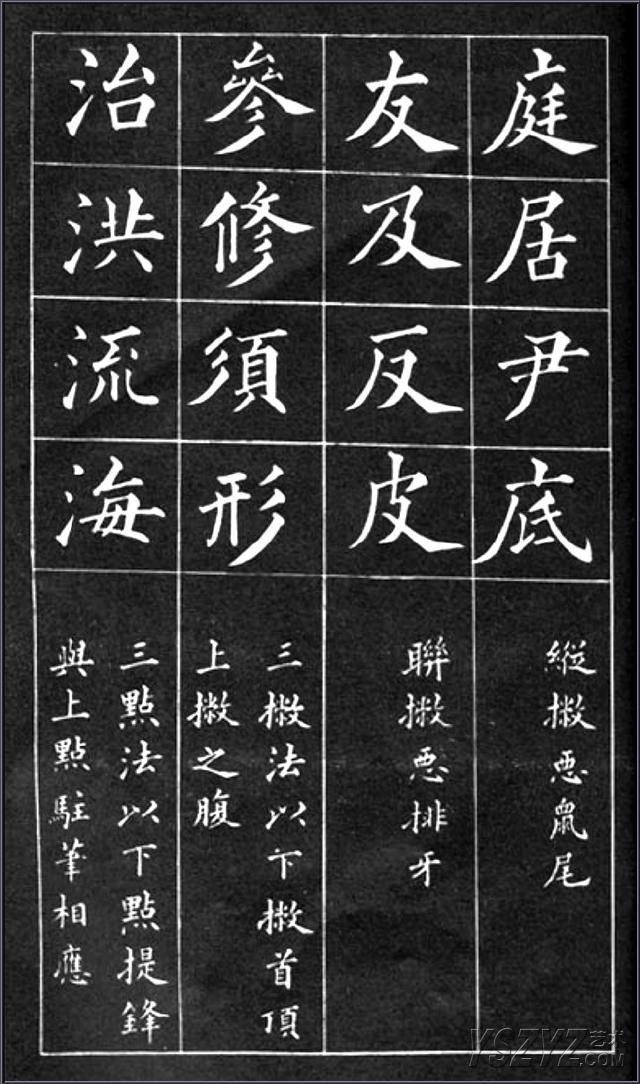 庭居尹底
縱撇惡鼠尾
友及反皮
聯撇惡排牙
參修須形
三撇法以下撇首頂
上撇之腹
治洪流海
三點法以下點提鋒
與上點駐筆相應
YSZYZ艺术
.COM